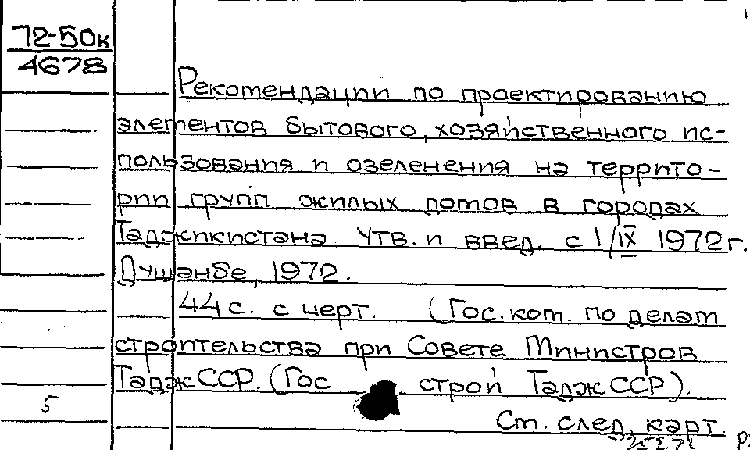 72-50к
4678
Рекомендации по проектированию
элементов бытового, хозяйственного ис-
пользования и озеленения на террито-
рии групп жилых домов в городах
Таджикистана Утв. и введ. с 1/IX 1972г.
Душанбе, 1972.
44 с. с черт. (Гос. ком. по делам
строительства при Совете Министров
ТаджССР. (Гос строй ТаджССР).
5
Ст. след. карт.